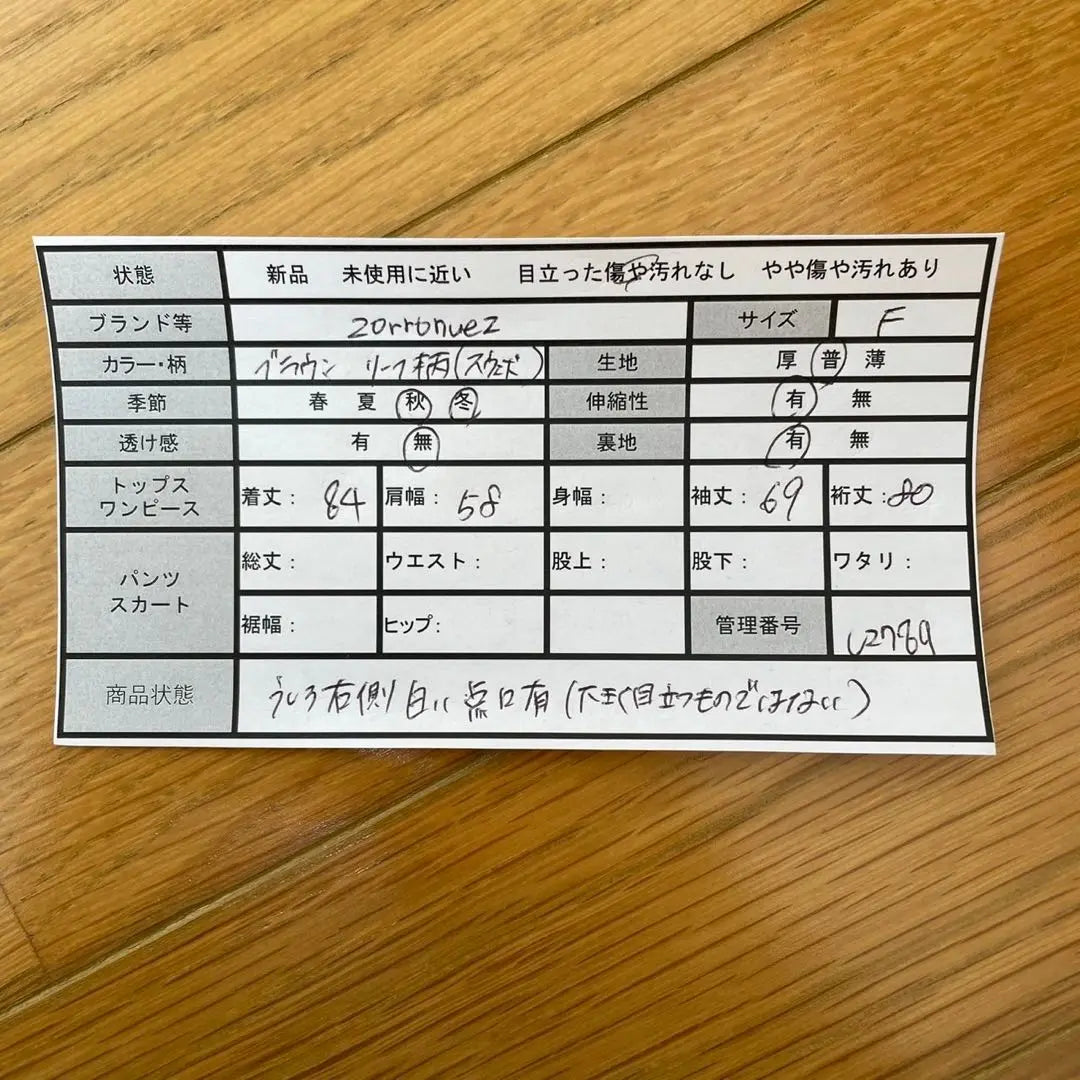 状態 新品 未使用に近い 目立った傷や汚れなし やや傷や汚れあり
ブランド等 zorronuez サイズ F
カラー・柄 ブラウン リーフ柄(スウェード) 生地 厚 普 薄
季節 春 夏 秋 冬 伸縮性 有 無
透け感 有 無 裏地 有 無
トップス
ワンピース
着丈: 84 肩幅: 58 身幅: 袖丈: 69 裄丈: 80
パンツ
スカート
総丈: ウエスト: 股上: 股下: ワタリ:
裾幅: ヒップ: 管理番号 U2789
商品状態 うしろ右側 白い 点口有 (大きく目立つものではない)